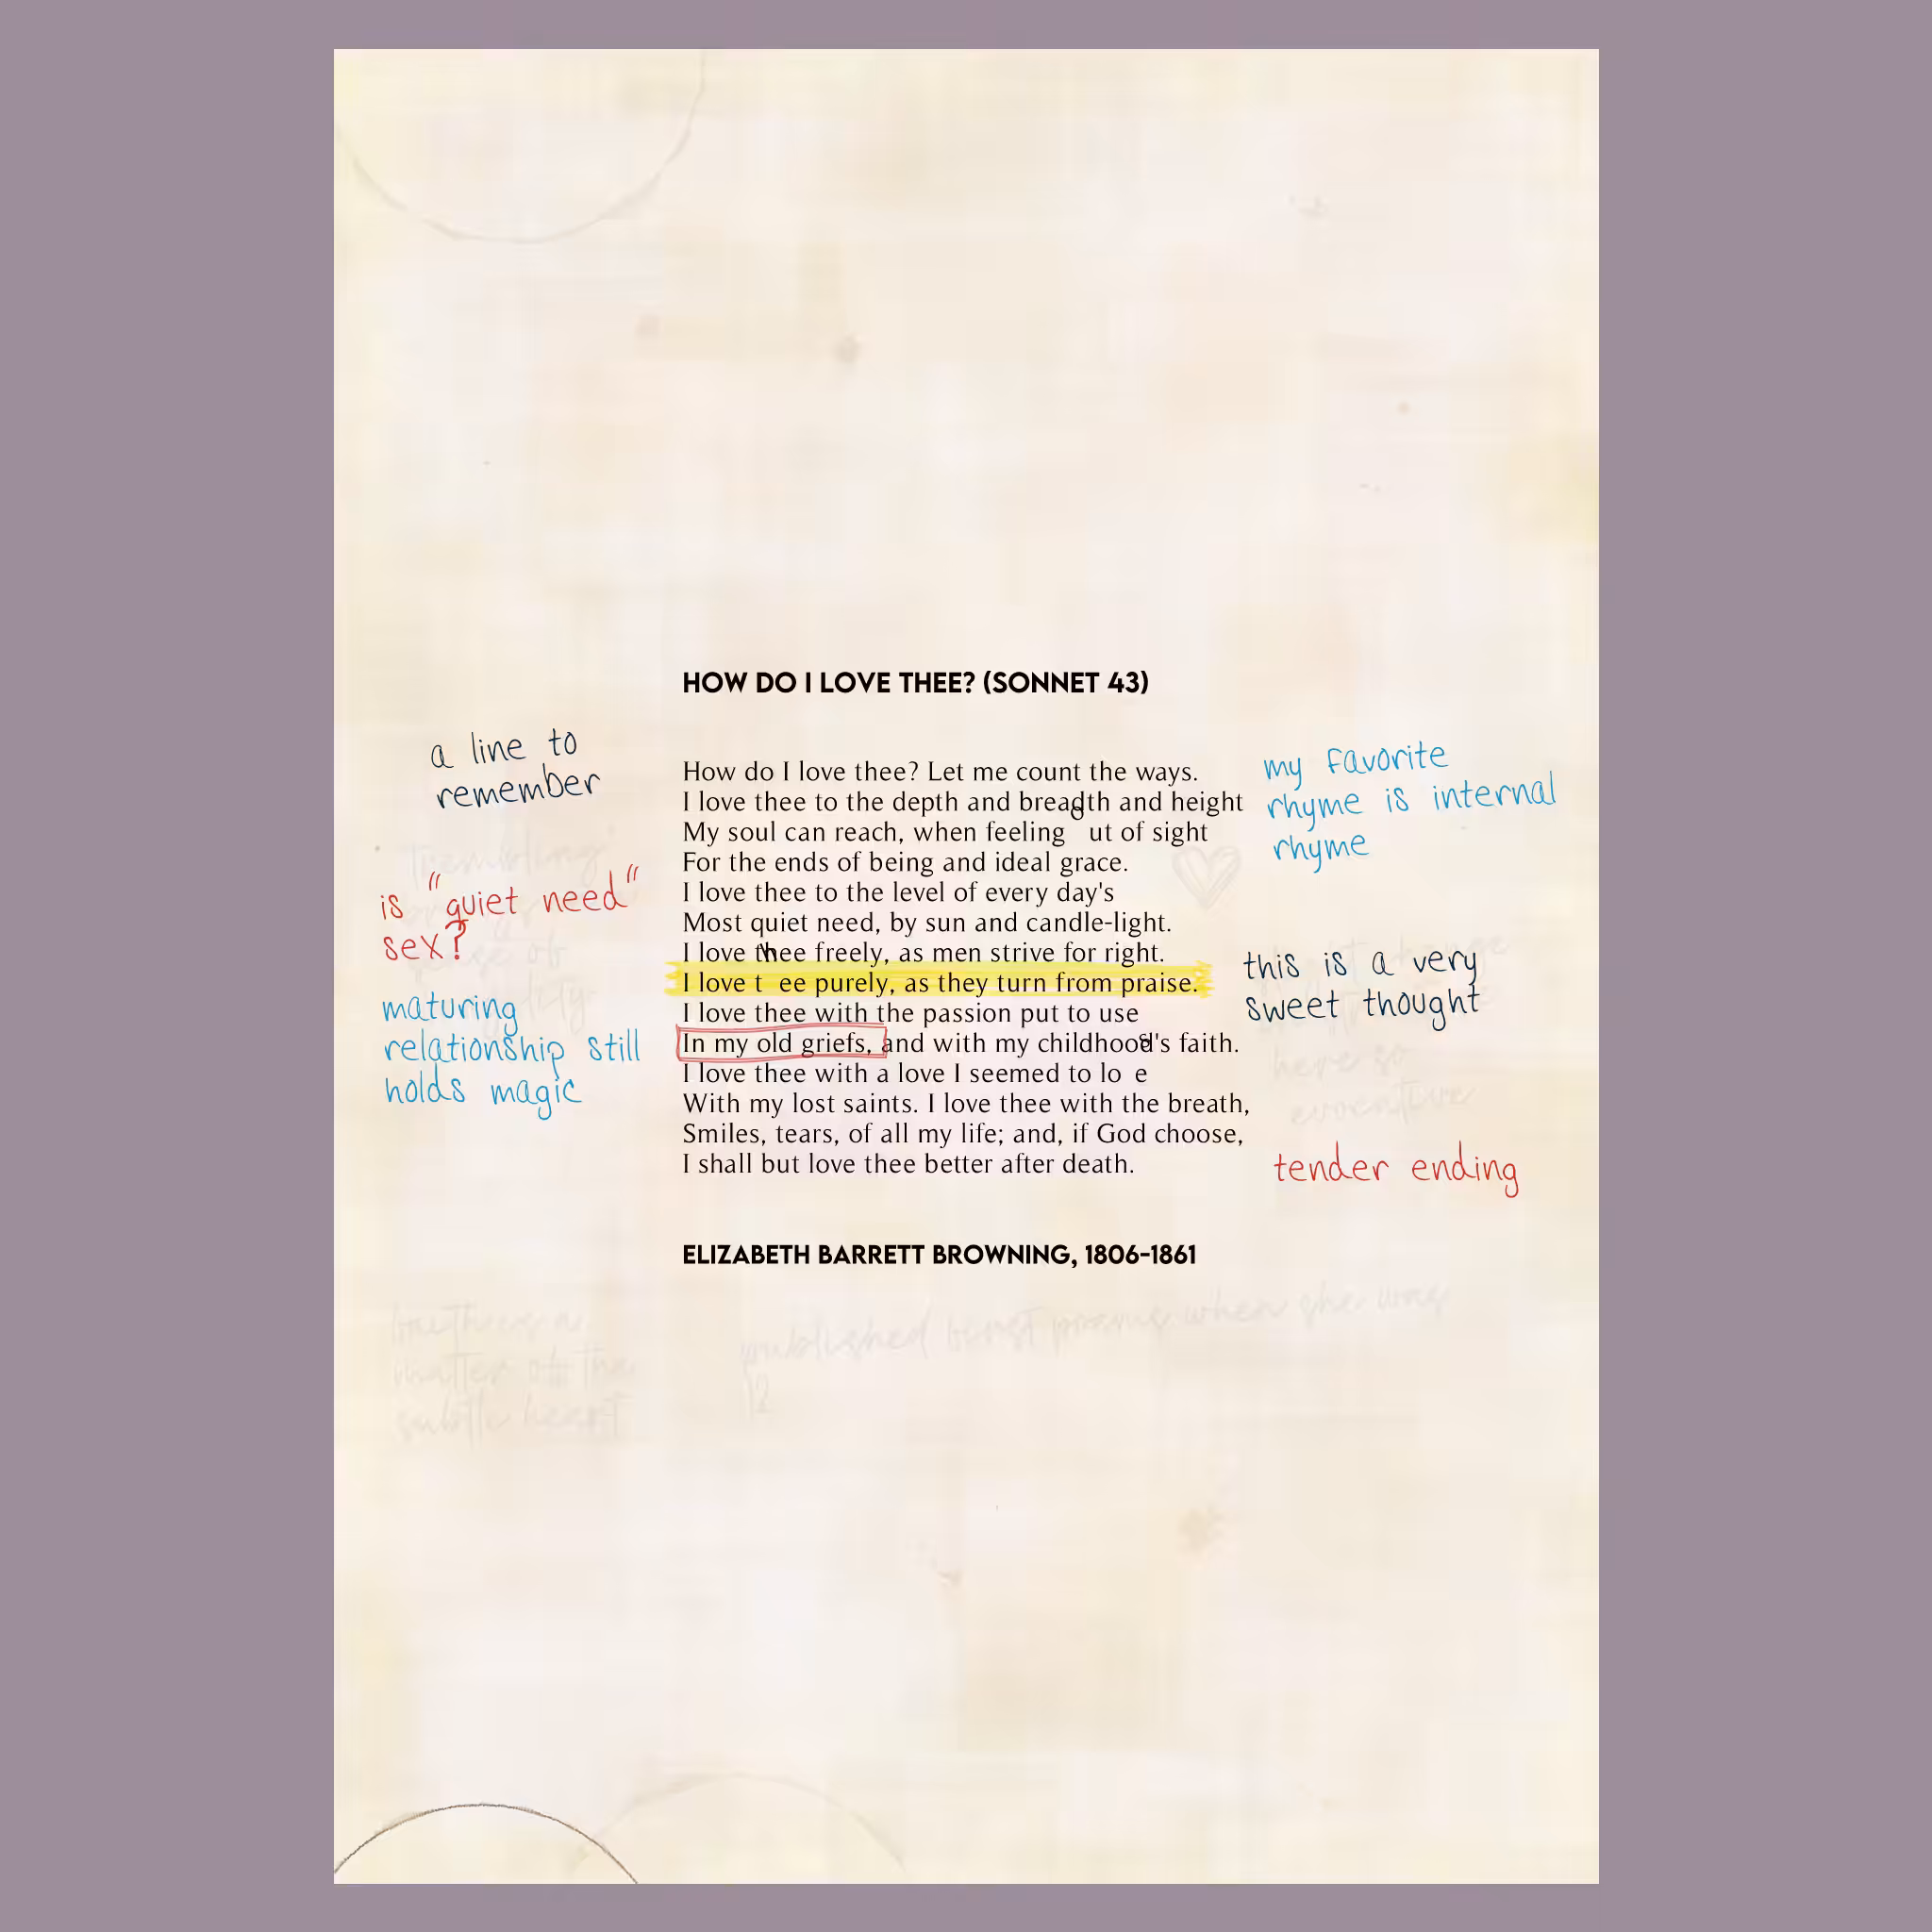 HOW DO I LOVE THEE? (SONNET 43)
a line to
remember
my favorite
rhyme is internal
rhyme
How do I love thee? Let me count the ways.
I love thee to the depth and breadth and height
My soul can reach, when feeling out of sight
For the ends of being and ideal grace.
I love thee to the level of every day's
Most quiet need, by sun and candle-light.
I love thee freely, as men strive for right.
I love thee purely, as they turn from praise.
I love thee with the passion put to use
In my old griefs, and with my childhood's faith.
I love thee with a love I seemed to lose
With my lost saints. I love thee with the breath,
Smiles, tears, of all my life; and, if God choose,
I shall but love thee better after death.
is "quiet need"
sex?
maturing
relationship still
holds magic
this is a very
sweet thought
here so
tender ending
ELIZABETH BARRETT BROWNING, 1806-1861
published first poems when she was
12
matter of the
subtle heart